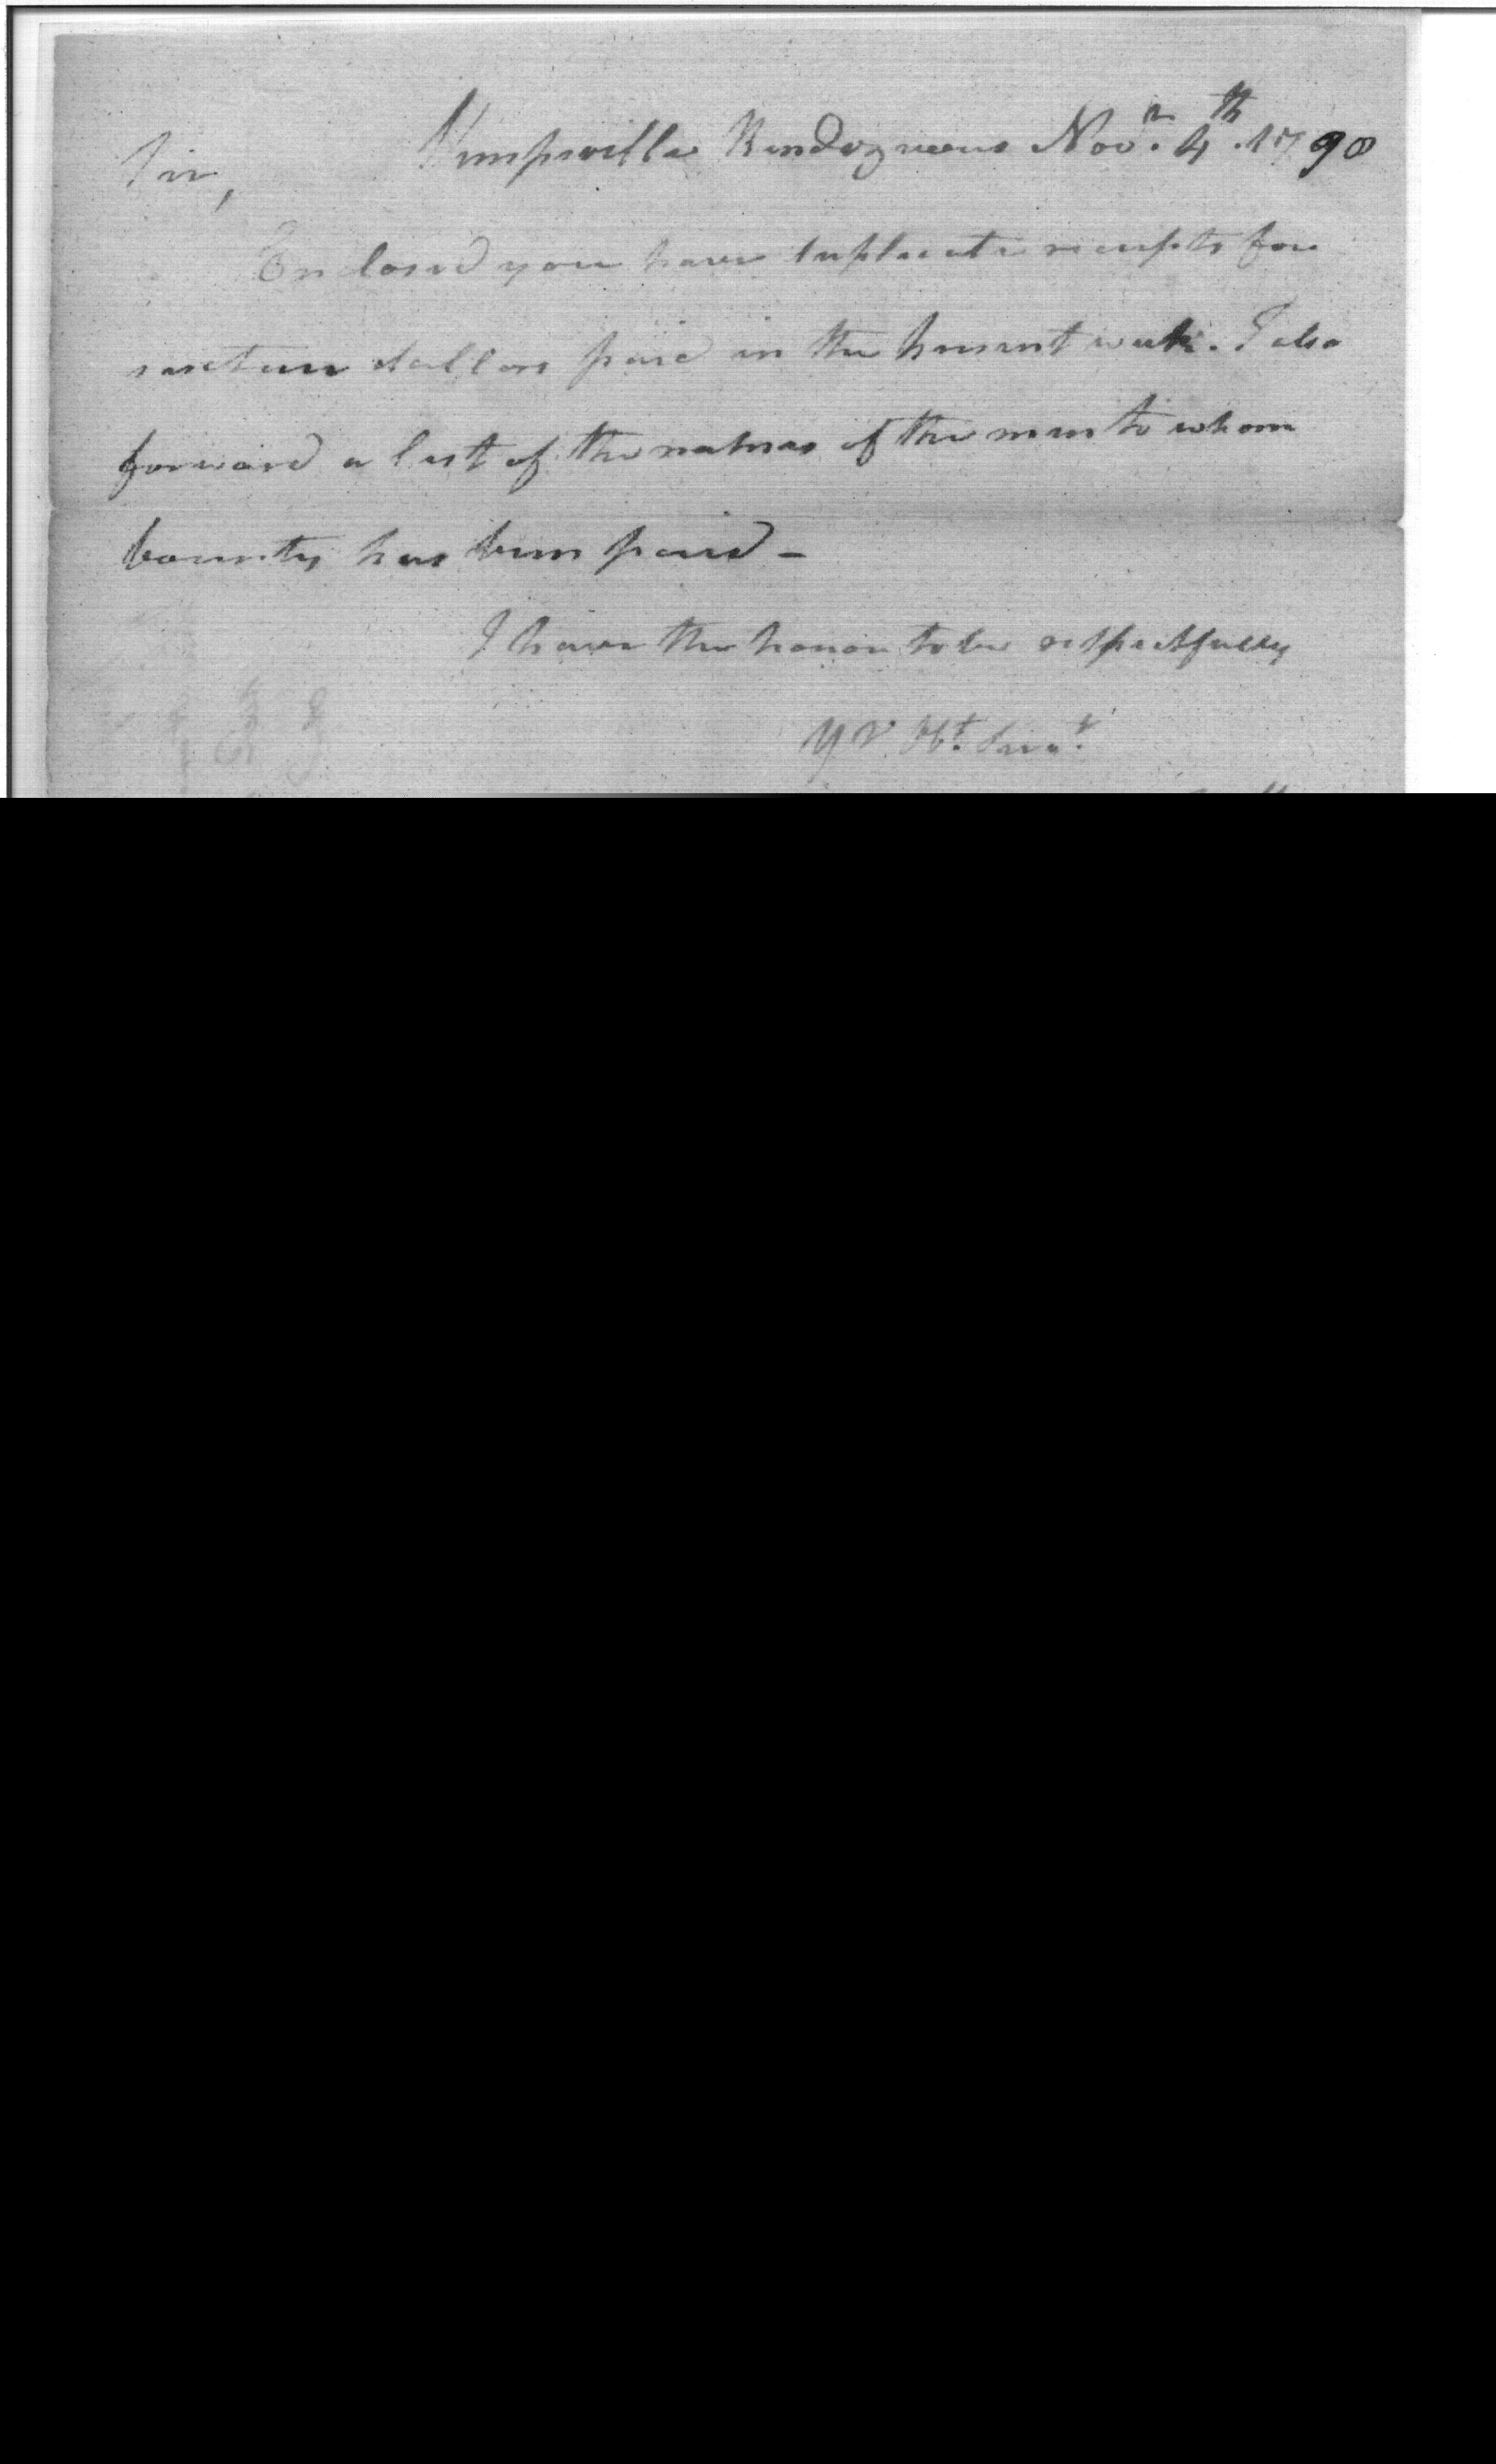 Kempsville Rendezvous Nov.r 4th. 1798
Sir,
Enclosed you have duplicate receipts for
sixteen dollars paid in the present week. I also
forward a list of the names of the men to whom
bounty has been paid -
I have the honor to be respectfully
Yr. Obt. Servt.